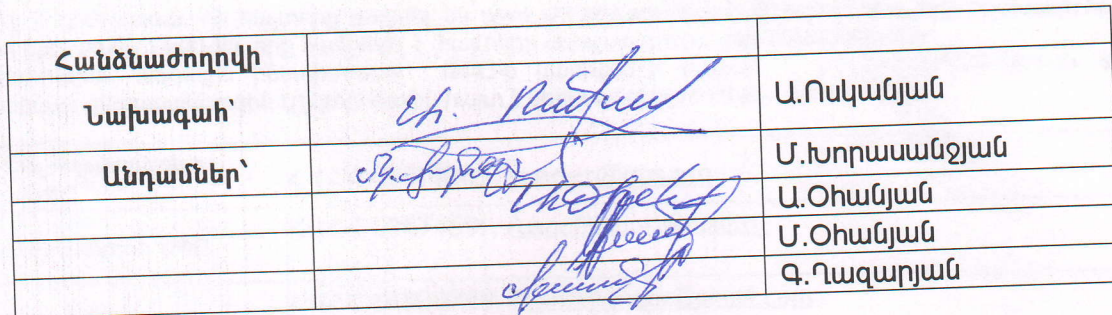 Հանձնաժողովի
Նախագահ՝
Ա.Ոսկանյան
Անդամներ՝
Մ.Խորասանջյան
Ա.Օհանյան
Մ.Օհանյան
Գ.Ղազարյան